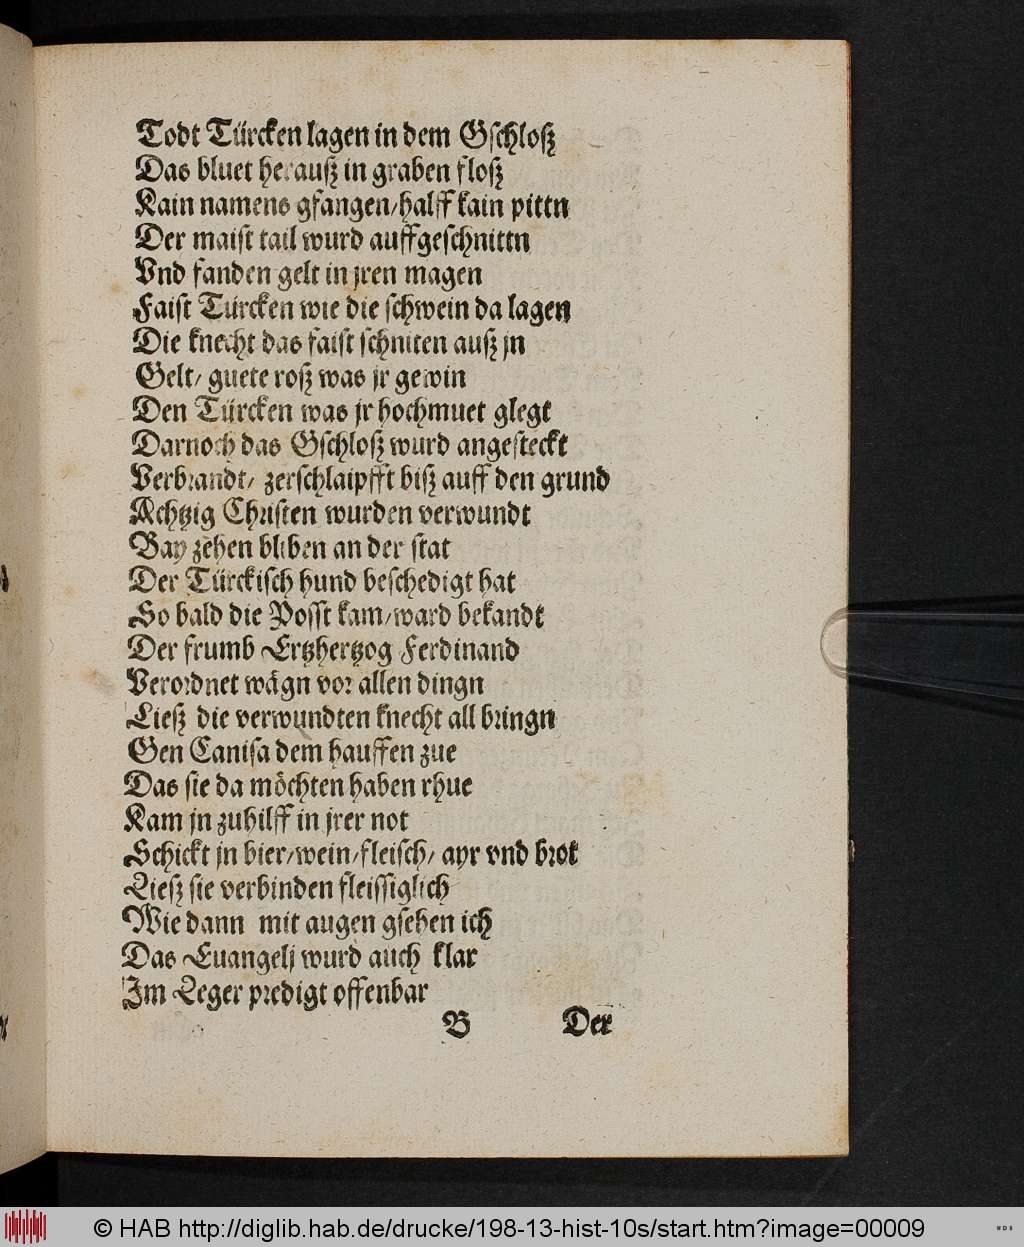 Todt Türcken lagen in dem Gschloß
Das bluet herauß in graben floß
Kain namens gfangen/halff kain pittn
Der maist tail wurd auffgeschnittn
Vnd fanden gelt in jren magen
Faist Türcken wie die schwein da lagen
Die knecht das faist schniten auß jn
Gelt/ guete roß was jr gewin
Den Türcken was jr hochmuet glegt
Darnoch das Gschloß wurd angesteckt
Verbrandt/ zerschlaipfft biß auff den grund
Achtzig Christen wurden verwundt
Bay zehen bliben an der stat
Der Türckisch hund beschedigt hat
So bald die Posst kam/ward bekandt
Der frumb Ertzhertzog Ferdinand
Verordnet wägn vor allen dingn
Ließ die verwundten knecht all bringn
Gen Canisa dem hauffen zue
Das sie da möchten haben rhue
Kam jn zuhilff in jrer not
Schickt jn bier/wein/fleisch/ ayr vnd brot
Ließ sie verbinden fleissiglich
Wie dann mit augen gsehen ich
Das Euangelj wurd auch klar
Im Leger predigt offenbar
B Der
© HAB http://diglib.hab.de/drucke/198-13-hist-10s/start.htm?image=00009